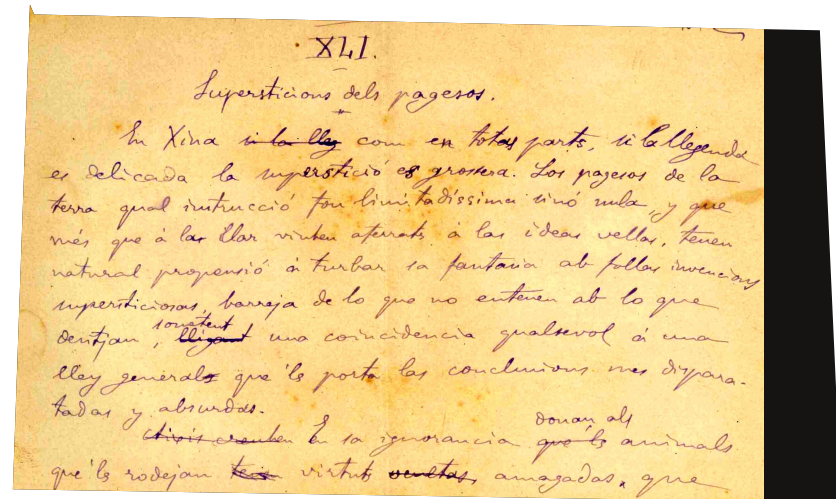 XLI.
Supersticions dels pagesos.
En Xina si la lley com en totas parts, si la llegenda
es delicada la superstició es grossera. Los pagesos de la
terra qual instrucció fou limitadíssima sinó nula, y que
més que á las llar viuhen aferrats á las ideas vellas, tenen
natural propensió á turbar sa fantasia ab follas invencions
supersticiosas, barreja de lo que no entenen ab lo que
desitjan, sometent lligant una coincidencia qualsevol á una
lley general que 'ls porta las conclusions mes dispara-
tadas y absurdas.
creuhen En sa ignorancia donan als que 'ls animals
que 'ls rodejan virtuts ocultas, amagadas, que